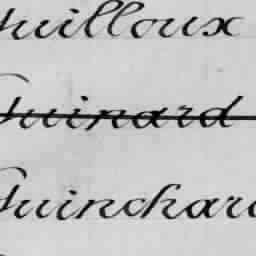 Guilloux
Guinard
Guinchard